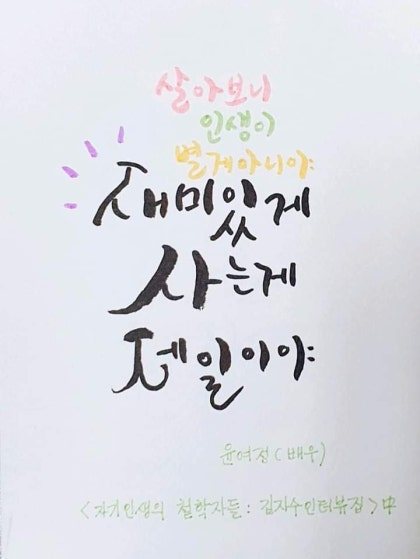 살아보니
인생이
별게아니야
재미있게
사는게
제일이야
윤여정(배우)
<자기인생의 철학자들: 김지수인터뷰집> 中